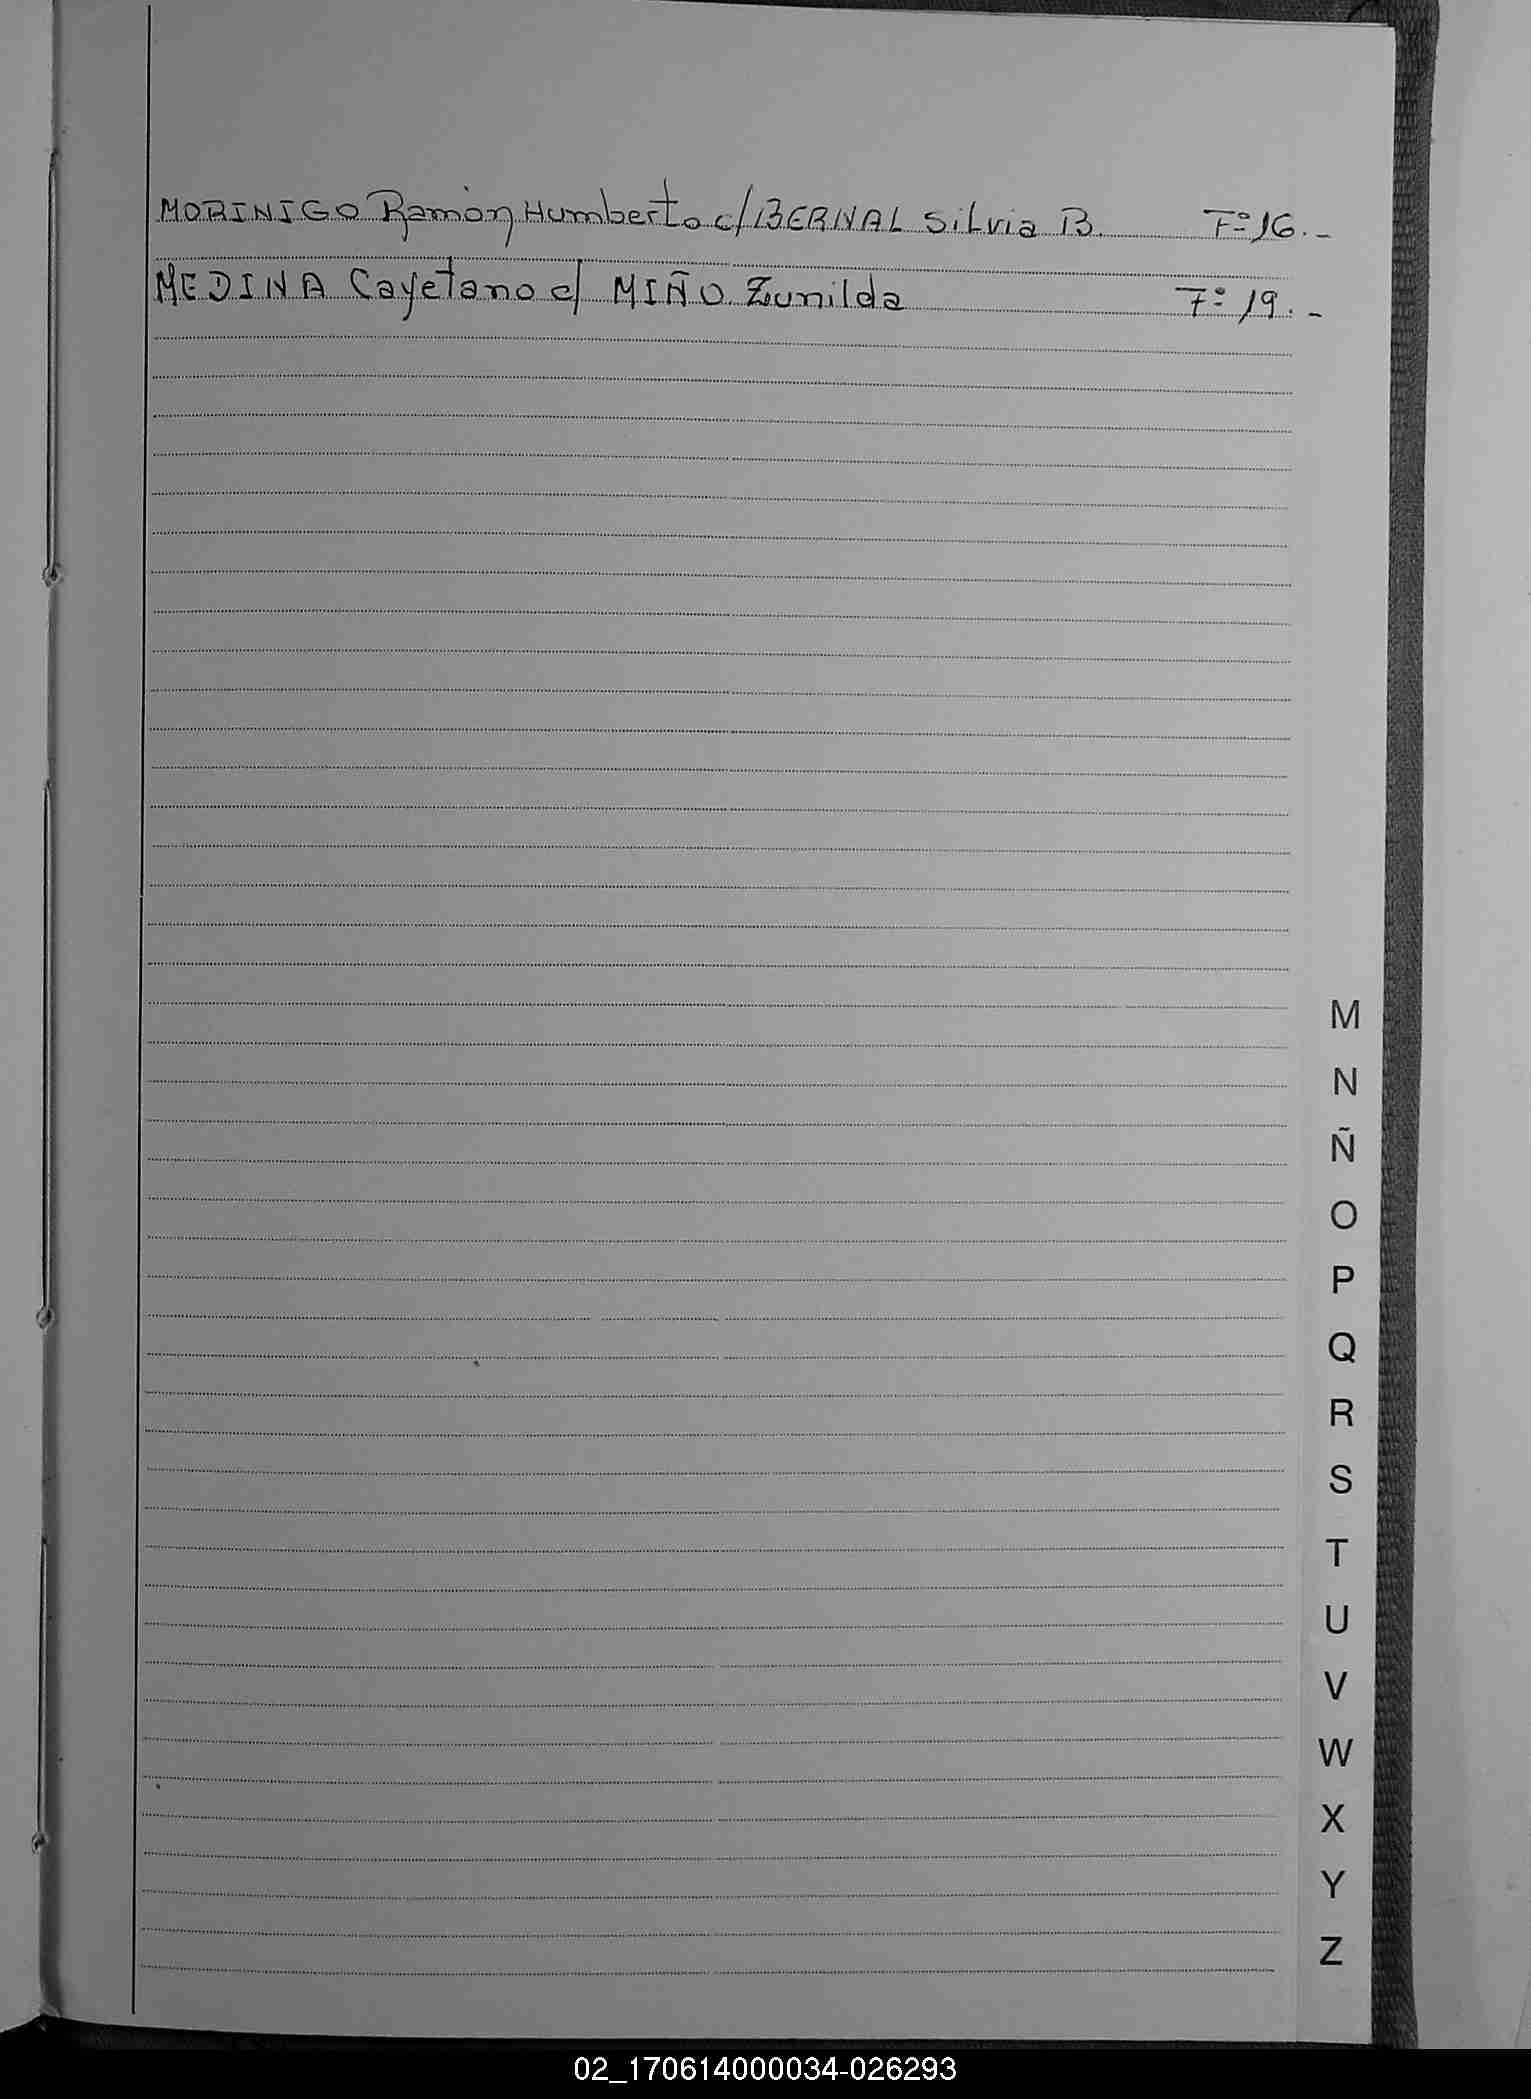 MORINIGO Ramón Humberto c/ BERNAL Silvia B. Fº 16.-
MEDINA Cayetano c/ MIÑO Zunilda Fº 19.-
M
N
Ñ
O
P
Q
R
S
T
U
V
W
X
Y
Z
02_170614000034-026293